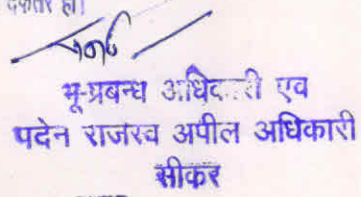 दफ्तर हो।
भू-प्रबन्ध अधिकारी एव
पदेन राजस्व अपील अधिकारी
सीकर